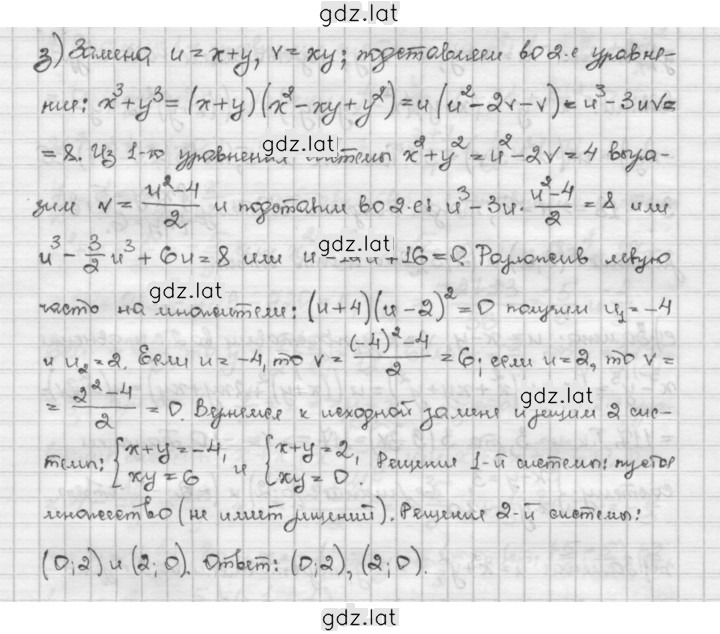 gdz.lat
з) Замена u = x+y, v = xy; подставляем во 2-е уравне-
ние: x³+y³ = (x+y)(x²-xy+y²) = u(u²-2v-v) = u³-3uv =
gdz.lat
= 8. Из 1-го уравнения системы x²+y² = u²-2v = 4 выра-
зим v = \frac{u²-4}{2} и подставим во 2-е: u³-3u·\frac{u²-4}{2} = 8 или
gdz.lat
u³ - \frac{3}{2}u³ + 6u = 8 или u +16=0. Разложив левую
gdz.lat
часть на множители: (u+4)(u-2)² = 0 получим u₁ = -4
и u₂ = 2. Если u = -4, то v = \frac{(-4)²-4}{2} = 6; если u = 2, то v =
= \frac{2²-4}{2} = 0. Вернемся к исходной замене и решим 2 сис-
gdz.lat
темы: {x+y = -4, xy = 6 и {x+y = 2, xy = 0. Решение 1-й системы: пустое
gdz.lat
множество (не имеет решений). Решение 2-й системы:
gdz.lat
(0;2) и (2;0). Ответ: (0;2), (2;0).
gdz.lat